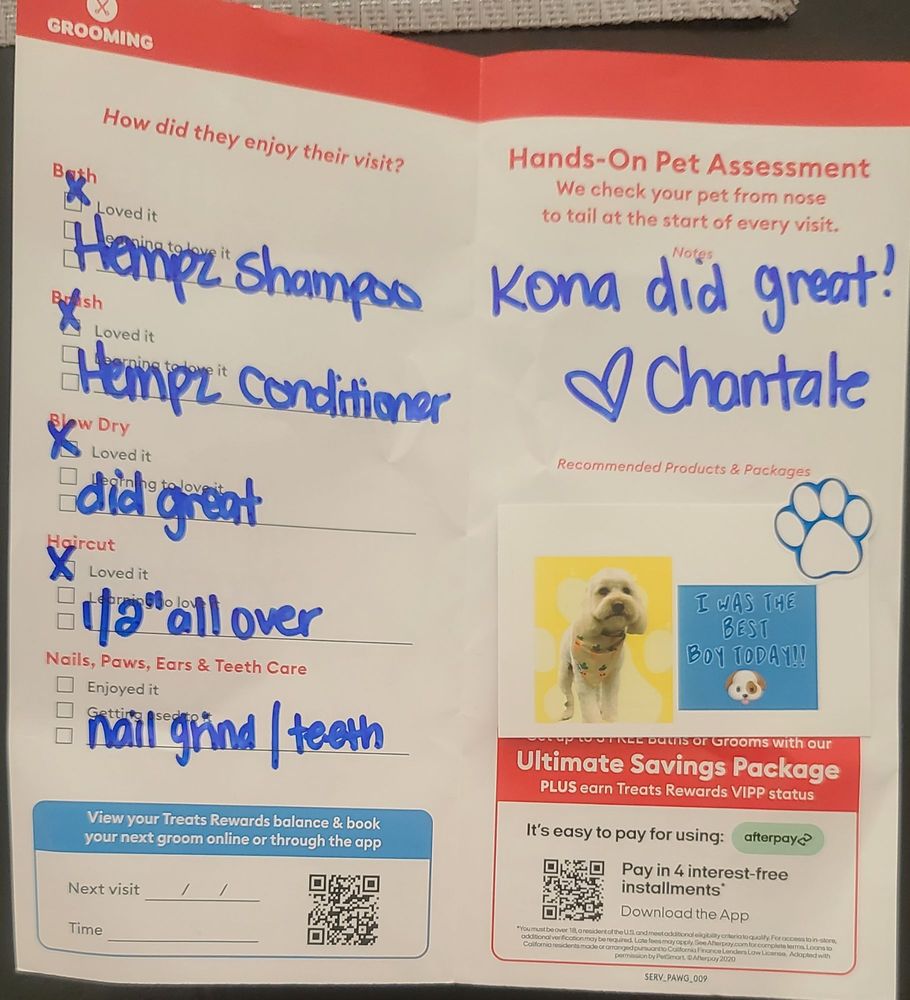 GROOMING
How did they enjoy their visit?
Bath
X Loved it
Learning to love it
Hempz Shampoo
Brush
X Loved it
Learning to love it
Hempz Conditioner
Blow Dry
X Loved it
Learning to love it
did great
Haircut
X Loved it
Learning to love it
1/2" all over
Nails, Paws, Ears & Teeth Care
Enjoyed it
Getting used to it
nail grind / teeth
View your Treats Rewards balance & book
your next groom online or through the app
Next visit / /
Time
Hands-On Pet Assessment
We check your pet from nose
to tail at the start of every visit.
Notes
Kona did great!
♡ Chantale
Recommended Products & Packages
I WAS THE
BEST
BOY TODAY!!
FREE Baths or Grooms with our
Ultimate Savings Package
PLUS earn Treats Rewards VIPP status
It's easy to pay for using: afterpay
Pay in 4 interest-free
installments*
Download the App
*You must be over 18, a resident of the U.S. and meet additional eligibility criteria to qualify. For access to in-store,
additional verification may be required. Late fees may apply. See Afterpay.com for complete terms. Loans to
California residents made or arranged pursuant to California Finance Lenders Law License. Adapted with
permission by PetSmart. ©Afterpay 2020
SERV_PAWG_009